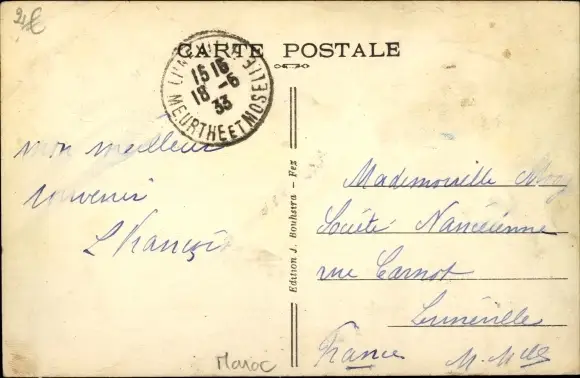 2€
CARTE POSTALE
15 16
18 - 6
33
MEURTHE ET MOSELLE
mon meilleur
souvenir
L François
Edition J. Bouhsira - Fez
Mademoiselle
Société Nancéienne
rue Carnot
Lunéville
France M.-Mlle
Maroc